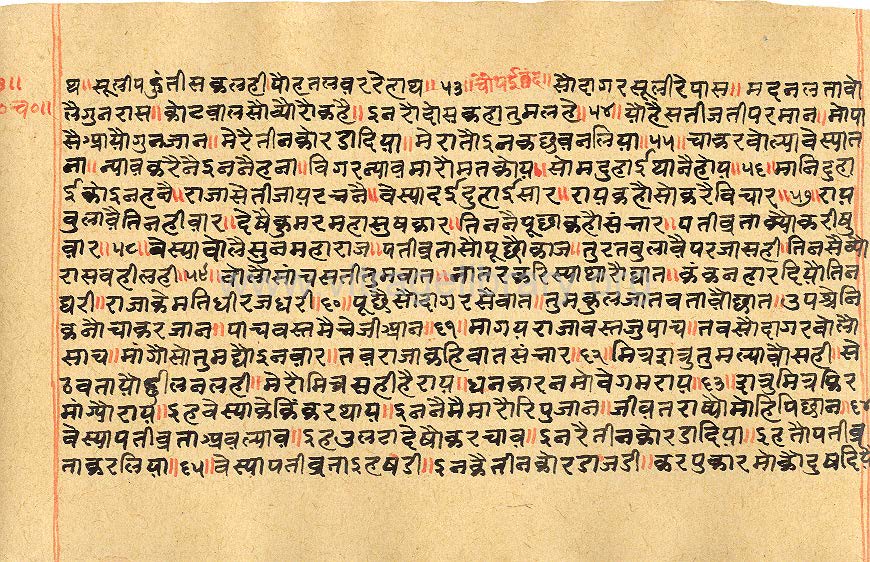 थ॥सूलीपकुंतीसकलही॥यौहतलवररैहाथ॥५३॥चौपईछंद॥सौदागरसूलीरैपास॥मदनलतावो
लैगुनरास॥कोटवालसौंयौंरौकहै॥इनरौदोसकहातुमलहे॥५४॥यौहैसतीजतीपरमान॥मोपा
सैआयौगुनजान॥मेरैतीनकोरडादिया॥मेरातौइनकछुवनलिया॥५५॥चाकरवोल्यावेस्यात
ना॥न्यावकरैनैइननैहना॥विगरन्यावमारौमतकोय॥सोमदुहाईयानैहोय॥५६॥मानिदुहा
ईकोइनहनै॥राजासेतीजापरचनै॥वैस्यादईदुहाईसार॥रायकहौसोकरैविचार॥५७॥राय
वुलावैतिनहीवार॥देषैकुमरमहासुषकार॥तिननैपूछाकहौसंचार॥पतीवृताक्यौकरीषु
वार॥५८॥वेस्यावोलैसुनमहाराज॥पतीवृतासोपूछौकाज॥तुरतवुलावैपरजासही॥तिनसैव्यौ
रासवहीलही॥५९॥वोलौसांचसती
द्यरी॥राजाकेमतिधीरजधरी॥६०॥पूछैसौदागरसेवात॥तुमकुलजातवतावौछात॥उपश्चेनि
कनौचाकरजान॥पाचवस्तमैचेजीआन॥६१॥मागयराजावस्तजुपाच॥तवसौदागरवोलौ
साच॥मांगौसोतुमद्यौइनवार॥तवराजाकहिवातसंचार॥६२॥मित्रशत्रुतुमल्यावौसही॥से
ठवतायौढीलनलही॥मेरौमित्रसहीहैराय॥धनकारनमोवेगमराय॥६३॥शत्रुमित्रफिर
मांग्यौराय॥इहवेस्याकेकिंकरथाय॥इननैमैमारौरिपुजान॥जीवतराष्यौमोहिपिछान॥६४
वेस्यापतीवृताअवल्याव॥इहकुलटादेषौकरचाव॥इनरैतीनकोरडादिया॥इहतौपतीवृ
ताकरलिया॥६५॥वेस्यापतीवृताइहषडी॥इनकैतीनकोरडाजडी॥करपुकारमोकौदुषदिय